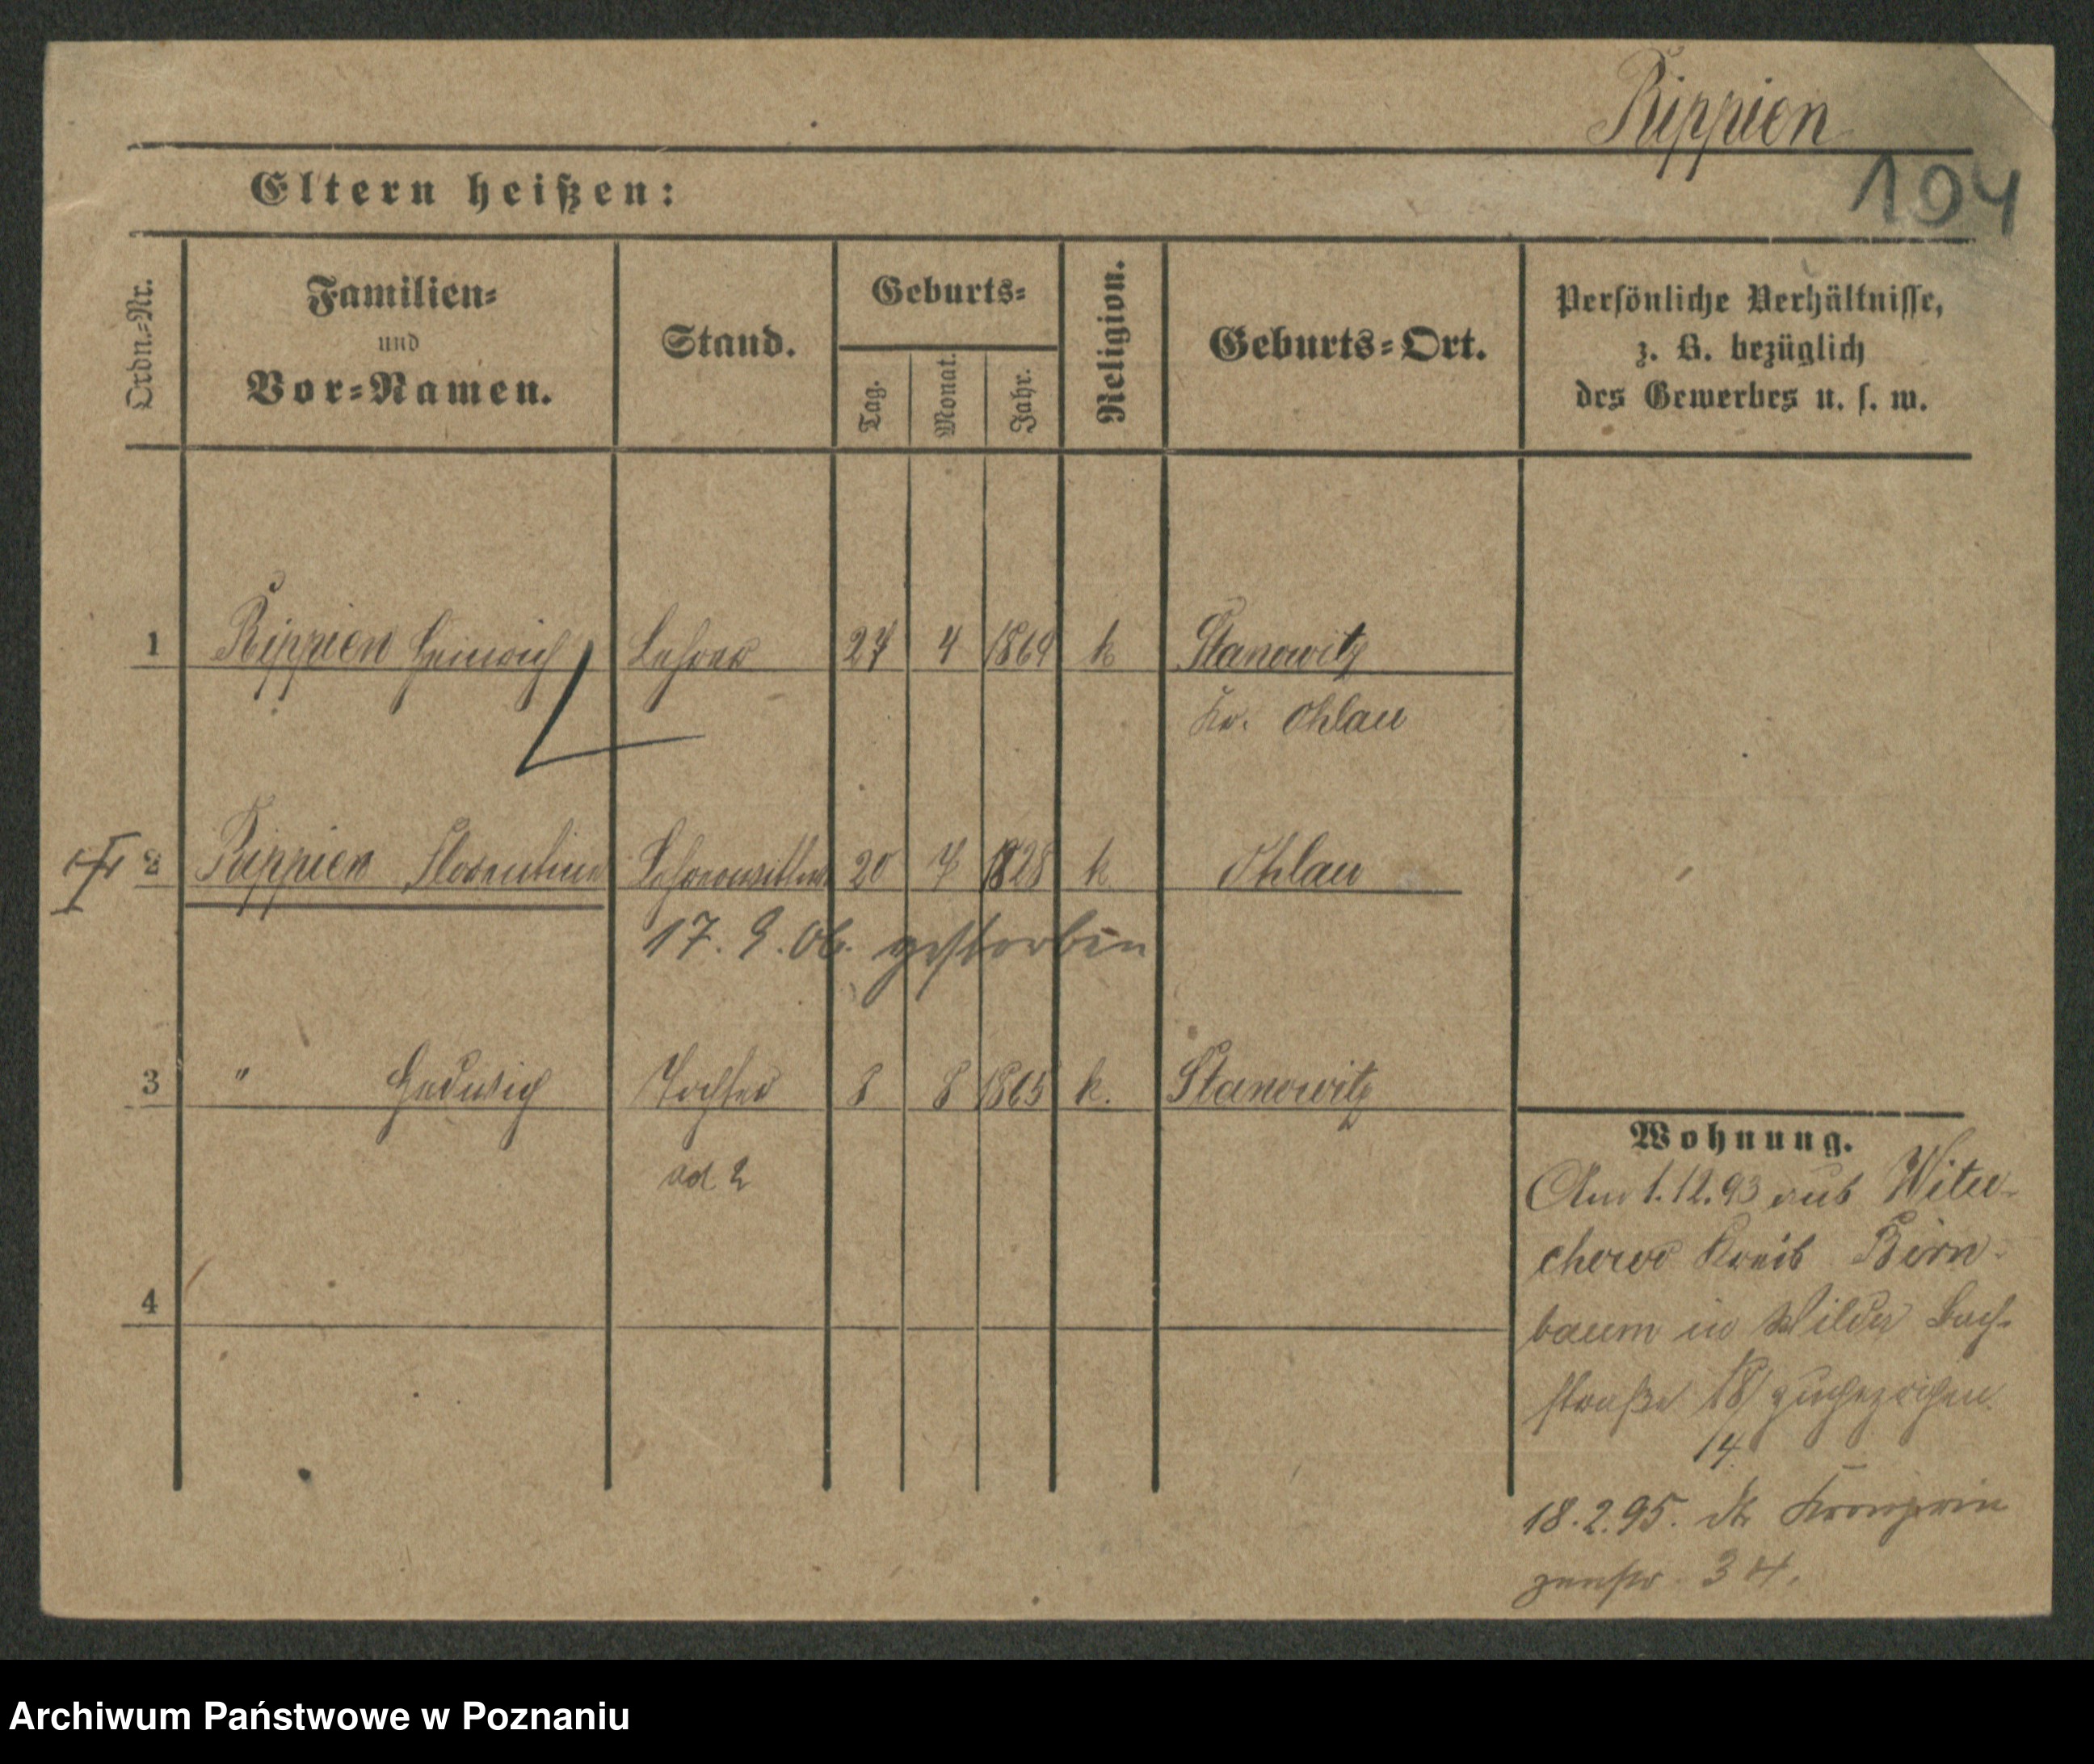 Rippien
104
Eltern heißen:
Ordn.-Nr.
Familien-
und
Vor-Namen.
Stand.
Geburts-
Tag.
Monat.
Jahr.
Religion.
Geburts-Ort.
Persönliche Verhältnisse,
z. B. bezüglich
des Gewerbes u. s. w.
1 Rippien Heinrich Lehrer 27 4 1864 k Stanowitz
Kr. Ohlau
2 Rippien Florentine Lehrerwittwe 20 7 1828 k Ohlau
17. 9. 06. gestorben
3 " Hedwig Tochter 8 8 1865 k. Stanowitz
ad. 2
4
Wohnung.
Am 1.12.93 aus Witu-
chowo Kreis Birn-
baum in Wilda Bach-
straße 18/ zugezogen
14
18.2.95. Kronprin
zenstr. 34.
Archiwum Państwowe w Poznaniu